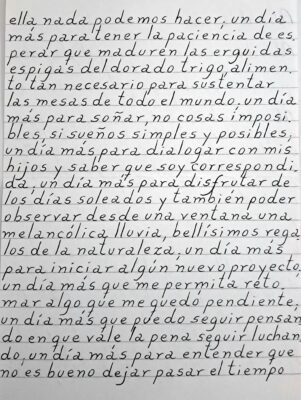 ella nada podemos hacer, un día
más para tener la paciencia de es
perar que maduren las erguidas
espigas del dorado trigo, alimen
to tan necesario para sustentar
las mesas de todo el mundo, un día
más para soñar, no cosas imposi
bles, si sueños simples y posibles,
un día más para dialogar con mis
hijos y saber que soy correspondi
da, un día más para disfrutar de
los días soleados y también poder
observar desde una ventana una
melancólica lluvia, bellísimos rega
los de la naturaleza, un día más
para iniciar algún nuevo proyecto,
un día más que me permita reto
mar algo que me quedo pendiente,
un día más que puedo seguir pensan
do en que vale la pena seguir luchan
do, un día más para entender que
no es bueno dejar pasar el tiempo